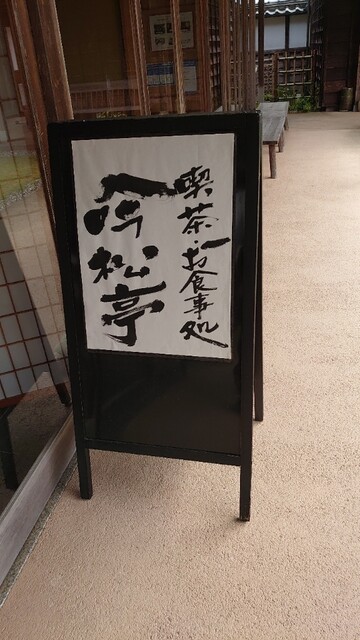 喫茶・お食事処
吟松亭